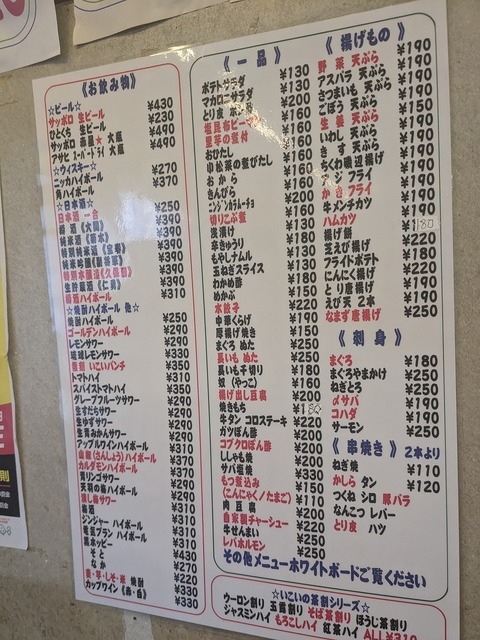 《お飲み物》
☆ビール☆
サッポロ 生ビール ¥430
ひとくち 生ビール ¥230
サッポロ 赤星★ 大瓶 ¥490
アサヒ スーパードライ 大瓶 ¥490
☆ウイスキー☆
ニッカハイボール ¥270
角ハイボール ¥370
☆日本酒☆
日本酒 一合 ¥250
¥390
¥390
¥390
¥390
¥390
¥390
樽酒ハイボール ¥310
☆焼酎ハイボール 他☆
焼酎ハイボール ¥250
ゴールデンハイボール ¥290
レモンサワー ¥290
琉球レモンサワー ¥330
いこいパンチ ¥350
トマトハイ ¥310
スパイストマトハイ ¥350
グレープフルーツサワー ¥290
生すだちサワー ¥290
生ゆずサワー ¥290
生青みかんサワー ¥290
アップルワインハイボール ¥310
山椒(さんしょう)ハイボール ¥370
カルダモンハイボール ¥370
青リンゴサワー ¥290
天羽の梅ハイボール ¥290
梅サワー ¥290
梅酒 ¥310
ジンジャー ハイボール ¥310
電気ブラン ハイボール ¥310
黒ホッピー ¥430
そと ¥270
なか ¥220
麦・芋・しそ・米 焼酎 ¥330
カップワイン(赤・白) ¥330
《一品》
ポテトサラダ ¥130
マカロニサラダ ¥130
とり皮 ポン酢 ¥200
塩昆布ピーマン ¥160
里芋の煮付 ¥160
おひたし ¥160
小松菜の煮びたし ¥160
おから ¥160
きんぴら ¥160
ニンジンカラムーチョ ¥200
切りこぶ煮 ¥160
浅漬け ¥160
辛きゅうり ¥130
もやしナムル ¥130
玉ねぎスライス ¥130
わかめ酢 ¥180
めかぶ ¥180
水餃子 ¥200
中華くらげ ¥190
厚揚げ焼き ¥150
まぐろ ぬた ¥250
長いも ぬた ¥250
長いも千切り ¥180
奴(やっこ) ¥160
揚げ出し豆腐 ¥200
焼きもち
牛タン コロステーキ ¥220
ガツぽん酢 ¥200
コブクロぽん酢 ¥200
ししゃも焼 ¥200
サバ塩焼 ¥330
もつ煮込み ¥150
(こんにゃく/たまご) ¥110
肉豆腐 ¥200
自家製チャーシュー ¥220
牛せんまい ¥250
レバホルモン ¥250
《揚げもの》
野菜 天ぷら ¥190
アスパラ 天ぷら ¥190
さつまいも 天ぷら ¥190
ごぼう 天ぷら ¥190
生姜 天ぷら ¥150
いわし 天ぷら ¥190
きす 天ぷら ¥190
ちくわ磯辺揚げ ¥190
アジフライ ¥190
かきフライ ¥190
牛メンチカツ ¥190
ハムカツ
揚げ餅 ¥220
芝えび揚げ ¥180
フライドポテト ¥220
にんにく揚げ ¥220
とり唐揚げ ¥190
えび天 2本 ¥190
なまず唐揚げ ¥250
《刺身》
まぐろ ¥180
まぐろやまかけ ¥250
ねぎとろ ¥250
〆サバ ¥190
コハダ ¥190
サーモン ¥250
《串焼き》 2本より
ねぎ焼 ¥110
かしら タン ¥120
つくね シロ 豚バラ
なんこつ レバー
とり皮 ハツ
その他メニューホワイトボードご覧ください
☆いこいの茶割シリーズ☆
ウーロン割り 玉露割り そば茶割り ほうじ茶割り
ジャスミンハイ もろこしハイ 紅茶ハイ